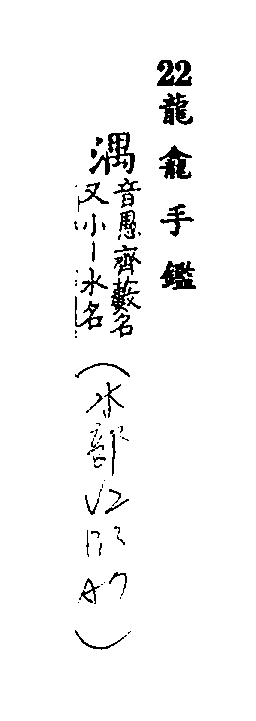 22龍龕手鑑
湡音愚齊藪名
又小丨水名
(水部V2
P13
A7)